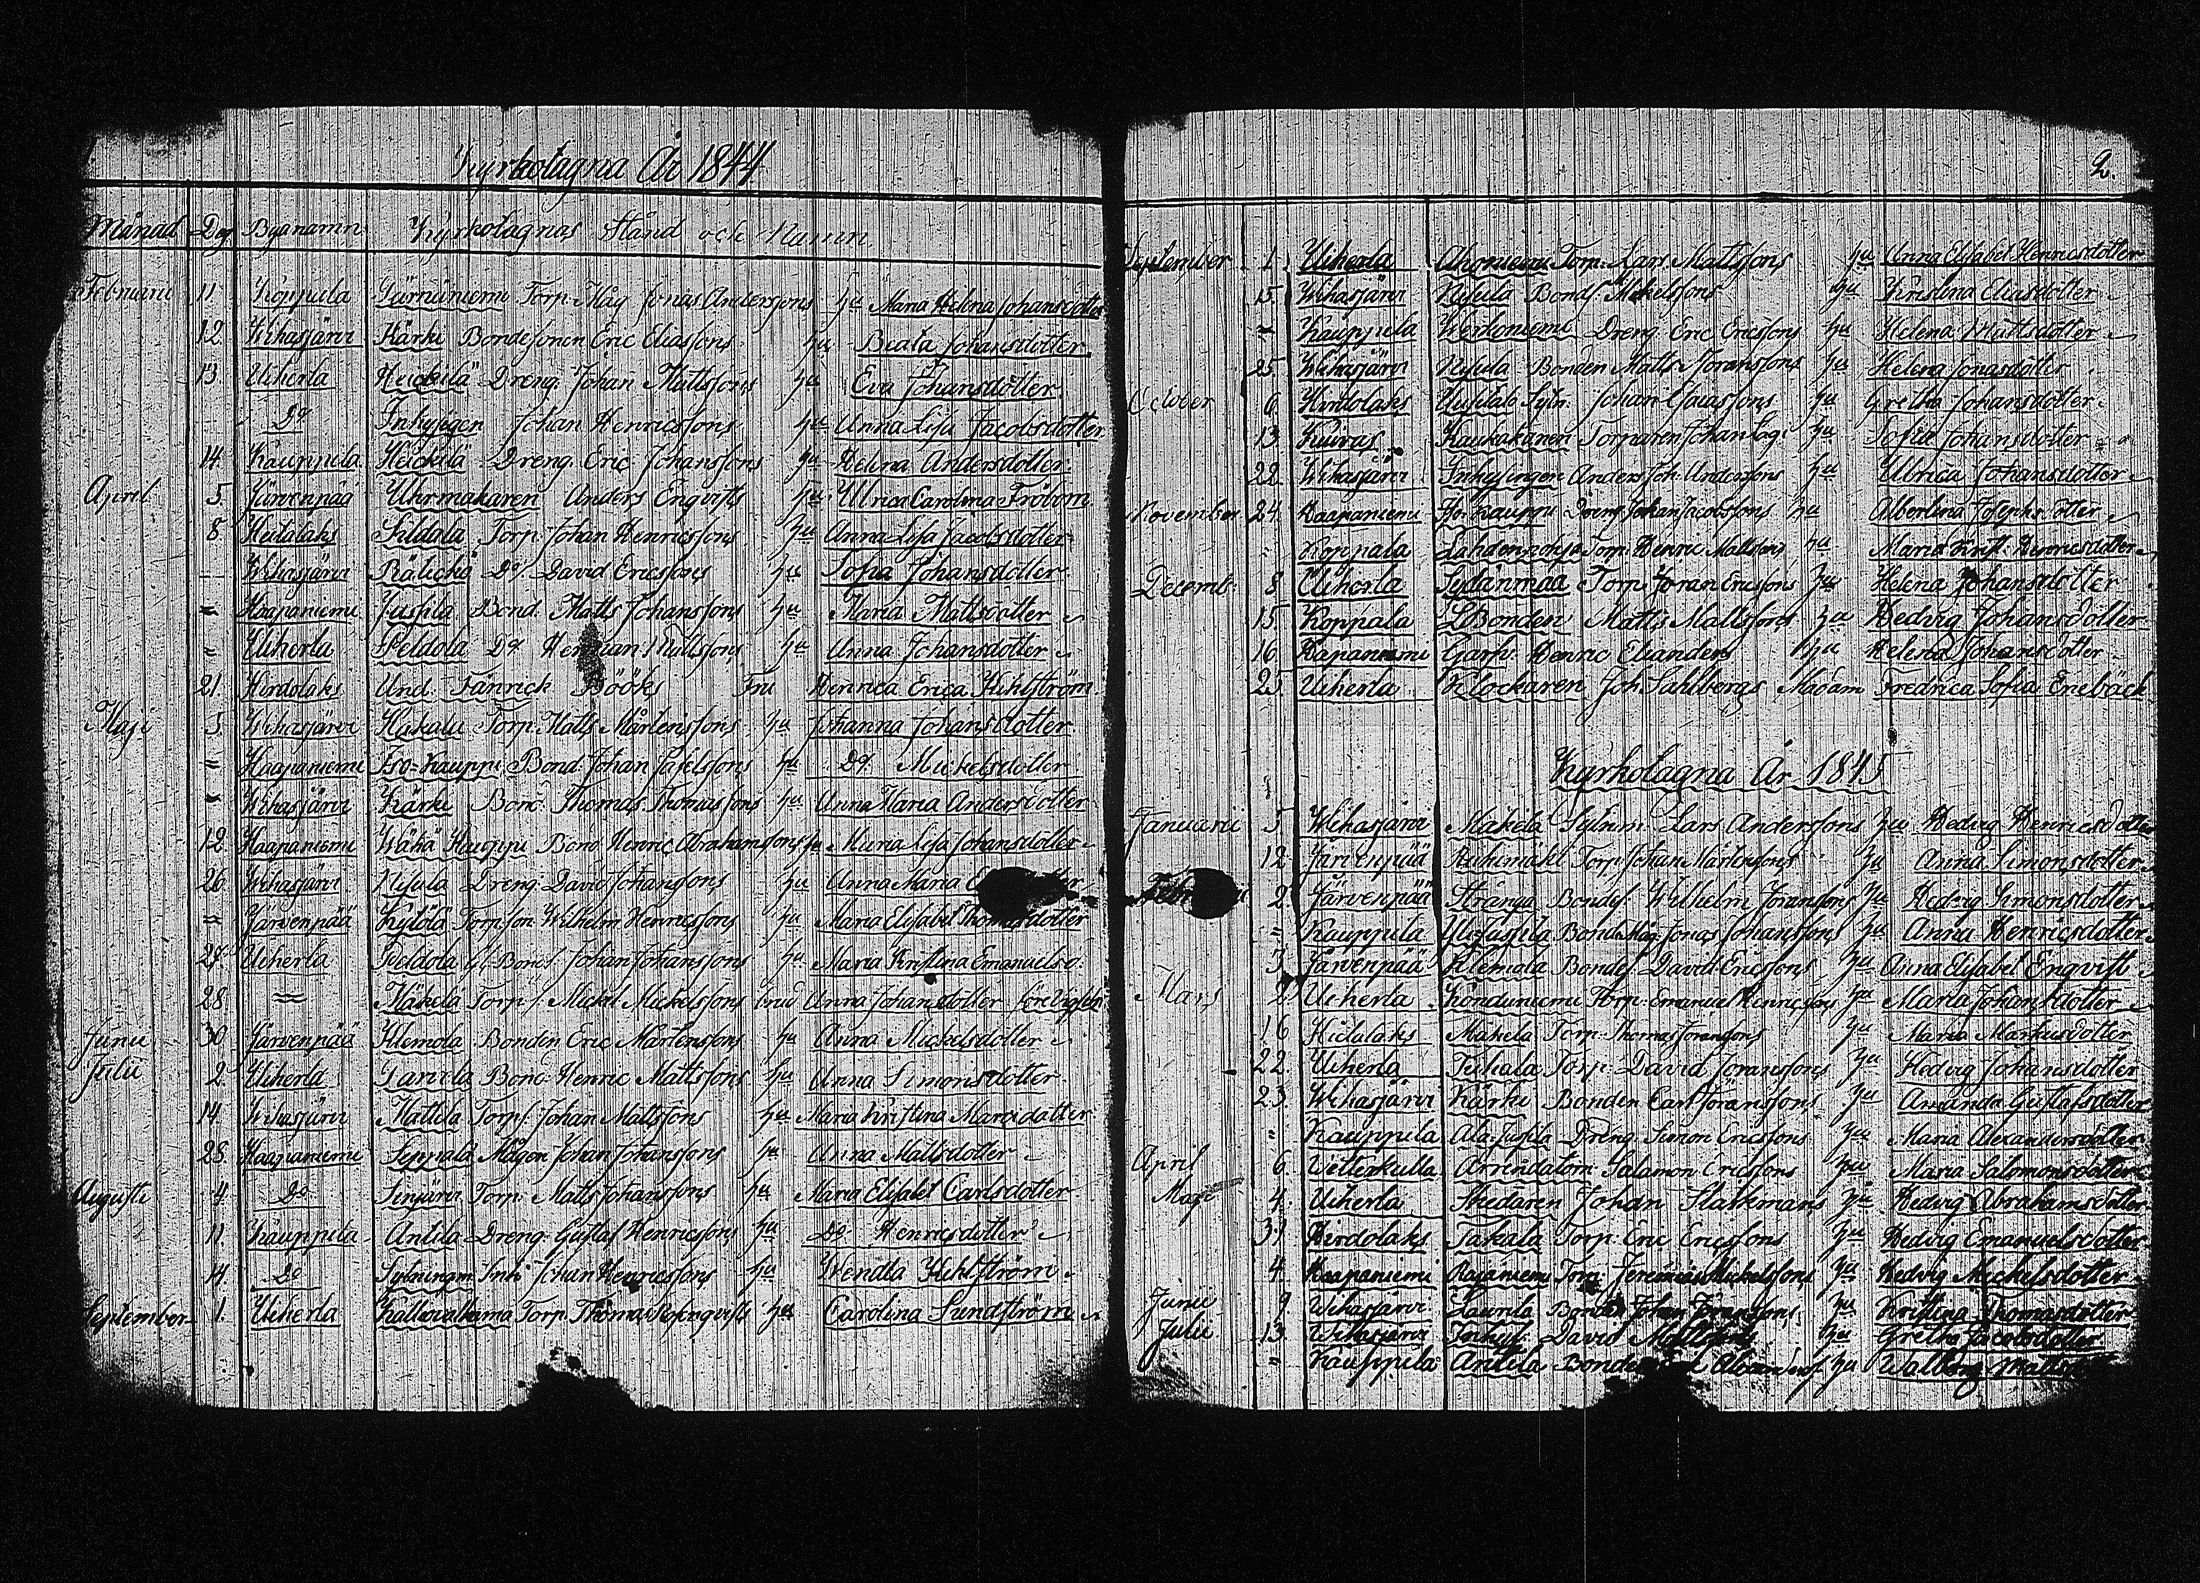 Kyrkotagna År 1844
Månad Dag Byanamn Kyrkotagnas Stånd och Namn
Februarii 11 Koppala Torp. Måg Jonas Anderssons hu Maria Helena Johansdotter
12 Wihasjärvi Kärki Bondesonen Eric Eliassons hu Beata Johansdotter
13 Uiherla Heickilä Dreng. Johan Mattssons hu Eva Johansdotter
Do Inhysigen Johan Henricssons hu Anna Lisa Jacobsdotter
14 Kauppila Heickilä Dreng. Eric Johanssons hu Helena Andersdotter
April 5 Järvenpää Uhrmakaren Anders Engvists hu Ulrica Carolina Fröbom
8 Heitalaks Torp. Johan Henricssons hu Anna Lisa Jacobsdotter
Wihasjärvi Do David Ericssons hu Sofia Johansdotter
= Haapaniemi Jussila Bond. Matts Johanssons hu Maria Mattsdotter
= Uiherla Peldola Do Herman Mattssons hu Anna Johansdotter
21 Hirdolaks Und. Fänrick Bööks Fru Henrica Erica Kihlström
Maji 5 Wihasjärvi Torp. Matts Mårtenssons hu Johanna Johansdotter
= Haapaniemi Iso-Kauppi Bond. Johan hu Do Mickelsdotter
= Wihasjärvi Kärki Bond. Thomas Thomassons hu Anna Maria Andersdotter
12 Haapaniemi Wähä Kauppi Bond Henric Abrahamssons hu Maria Lisa Johansdotter
26 Wihasjärvi Nisula Dreng. David Johanssons hu Anna Maria
= Järvenpää Kylölä Torp.son Wilhelm Henricssons hu Maria Elisabet Thomasdotter
27 Uiherla Peldola Bond. Johan Johanssons hu Maria Kristina Emanuelsd.
28 = Mäkelä Torp. Mickel Mickelssons brud Anna Johansdotter före Vigseln
Junii 30 Järvenpää Klemola Bonden Eric Mårtenssons hu Anna Mickelsdotter
Julii 2 Uiherla Bond. Henric Mattssons hu Anna Simonsdotter
14 Wihasjärvi Mattila Torp. Johan Mattssons hu Maria Kristina
28 Haapaniemi Seppälä Mågen Johan Johanssons hu Anna Mattsdotter
Augusti 4 Do Torp. Matts Johanssons hu Maria Elisabet Carlsdotter
11 Kauppila Antila Dreng. Gustaf Henricssons hu Do Henricsdotter
14 Do Johan Henricssons hu Wendla Kihlström
September 1 Uiherla Torp. Thomas hu Carolina Sundström
2.
September 1 Uiherla Ahoniemi Torp. Lars Mattssons hu Anna Elisabet Henricsdotter
15 Wihasjärvi Nisula Bond. Mickelssons hu Kristina Eliasdotter
= Kauppila Dreng. Eric Ericssons hu Helena Mattsdotter
25 Wihasjärvi Nisula Bonden Matts Joranssons hu Helena Jonasdotter
October 6 Hirdolaks Johan hu Gretha Johansdotter
13 Kuivas Kaukakanen Torparen Johan hu Sofia Johansdotter
22 Wihasjärvi Inhysingen Anders Joh. Anderssons hu Ulrica Johansdotter
November 24 Haapaniemi Iso Kauppi Dreng Johan Jacobssons hu Albertina Josephsdotter
Koppala Lahdenpohja Torp. Henric Mattssons hu Maria Krist. Henricsdotter
Decemb. 8 Uiherla Sydänmaa Torp. Joran Ericssons hu Helena Johansdotter
15 Koppala Bonden Matts Mattssons hu Hedvig Johansdotter
16 Garfv. Henric Elianders hu Helena Johansdotter
25 Uiherla Klockaren Joh. Sahlbergs Madam Fredrica Sofia Enebäck
Kyrkotagna År 1845
Januarii 5 Wihasjärvi Mäkelä Lars Anderssons hu Hedvig Henricsdotter
12 Järvenpää Torp. Johan Mårtenssons hu Anna Simonsdotter
2 Järvenpää Stränga Bondes. Wilhelm Joranssons hu Hedvig Simonsdotter
= Kauppila Ylijussila Bond. Måg. Jonas Johanssons hu Anna Henricsdotter
3 Järvenpää Klemola Bondes. David Ericssons hu Anna Elisabet Engvist
Mars 2 Uiherla Torp. Emanuel Henricssons hu Maria Johansdotter
16 Mäkelä Torp. Thomas Joranssons hu Maria Markusdotter
22 Uiherla Torp. David Joranssons hu Hedvig Johansdotter
23 Wihasjärvi Kärki Bonden Carl Joranssons hu Amanda Gustafsdotter
= Kauppila Ala-Jussila Dreng. Simon Ericssons hu Maria Alexandersdotter
April 6 Wetterkulla Arrendatorn Salamon Ericssons hu Maria Salomonsdotter
Maji 4 Uiherla Smedaren Johan Slätkmans hu Hedvig Abrahamsdotter
31 Hirdolaks Takala Torp. Eric Ericssons hu Hedvig Emanuelsdotter
4 Haapaniemi Rajaniemi Torp. Jeremias Mickelssons hu Hedvig Mickelsdotter
Junii 9 Wihasjärvi Laurila Bonden Johan Joranssons hu Kristina Thomasdotter
Julii 13 Wihasjärvi Inhys. David Mattssons hu Gretha Jacobsdotter
= Kauppila Antila hu Walborg